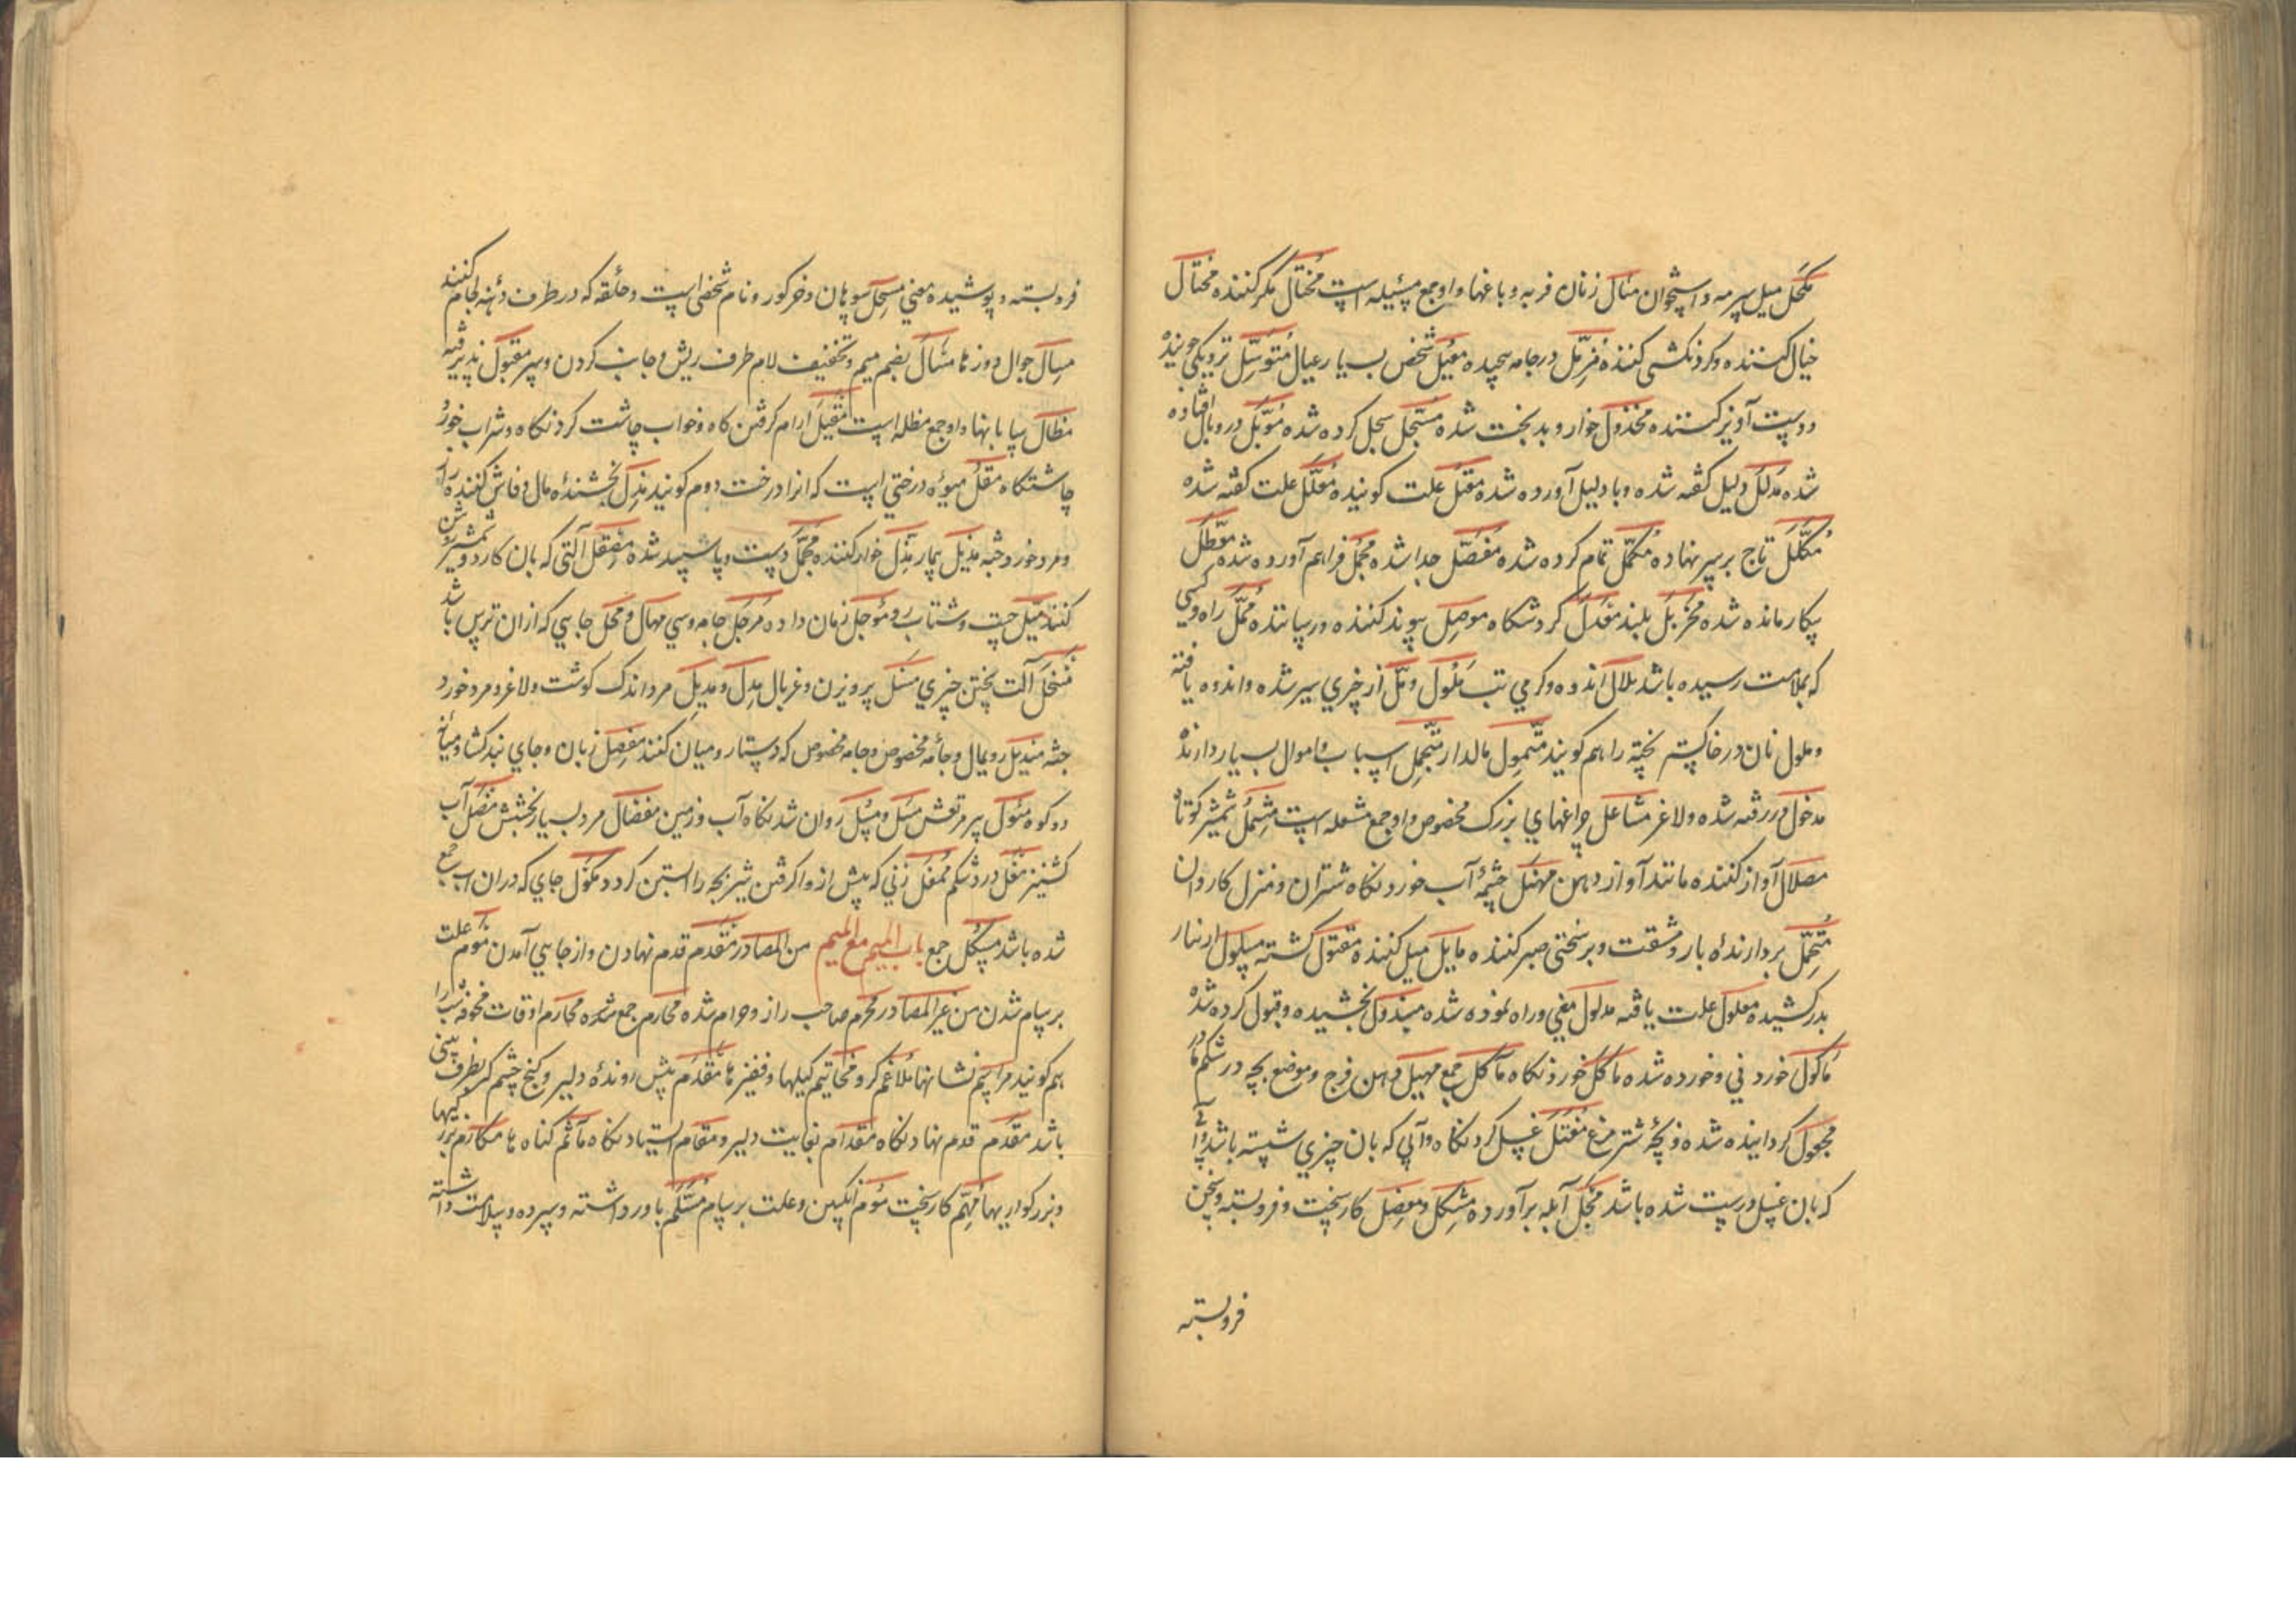 مکحل میل سرمه و استخوان مثال زنان فربه و باغها و او جمع مسئیله است مختال مکر کننده مختال
خیال کننده و کردنکشی کننده مزمل در جامه پیچیده معیل شخص بسیار عیال متوسل نزدیکی جوینده
دوست آویز کننده مخذول خوار و بدبخت شده مسجل سجل کرده شده موبل در وبال افتاده
شده مدلل دلیل کفته شده و با دلیل آورده شده علت کوینده معلل علت کفته شده
مکلل تاج بر سر نهاده مکمل تمام کرده شده مفصل جدا شده مجمل فراهم آورده شده معطل
بیکار مانده شده بلند کردشکاه موصل پیوند کننده و رساننده ممل راه و کسی
که بملامت رسیده باشد ملال اندوه و کرمی تب ملول و مل از چیزی سیر شده و اندوه یافته
و ملول نان در خاکستر پخته را هم کویند متمول مالدار متجمل اسباب و اموال بسیار دارنده
مدخول در رفته شده و لاغر مشاعل چراغهای بزرک مخصوص و او جمع مشعله است مشمل شمشیر کوتاه
مصلال آواز کننده مانند آواز دهن منهل چشمهٔ آب خورد نکاه شتران و منزل کاروان
متحمل بردارندهٔ بار و مشقت و بر سختی صبر کننده مایل میل کننده مقتول کشته مسلول از نیار
بدر کشیده معلول علت یافته مدلول معنی و راه نموده شده مبذول بخشیده و قبول کرده شده
ماکول خوردنی و خورده شده ماکل خوردنکاه مآکل جمع مهبل دهن فرج و موضع بچه در شکم مادر
مجعول کردانیده شده و بچهٔ شتر مرغ مغتسل غسل کردنکاه و آبی که بان چیزی شسته باشد و آبی
که بان غسل درست شده باشد مجل آبله برآورده مشکل و معضل کار سخت و فروبسته و سخن
فروبسته
فروبسته و پوشیده معنی مسحل سوهان و خر کور و نام شخصی است و حلقه که در طرف دهنه لجام کنند
مسال جوال دوزها مسال بضم میم و تخفیف لام طرف ریش و جانب کردن و سپر مقبول پذیرفته
مظال سایبانها و او جمع مظله است مقیل ارام کرفتن کاه و خواب چاشت کردنکاه و شراب خور
چاشتکاه مقل میوهٔ درختی است که انرا درخت دوم کویند مذل بخشندهٔ مال و فاش کننده
و مرد خورد جثه مذیل بیمار مذل خوار کننده دست و پا سپید شده مصقل آلتی که بان کارد و شمشیر روشن
کنند و شتاب رو مؤجل زمان داده مرجل جامه و سی مهال و محل جایی که از ان ترس باشد
منخل آلت بیختن چیزی منسل پرویزن و غربال مدل و مدیل مرد اندک کوشت و لاغر و مرد خورد
جثه مندیل رویمال و جامهٔ مخصوص و جامه مخصوص که دستار و میان کنند مفصل زبان و جای بند کشاد و میانهٔ
دو کوه پیر مرتعش مسل و مسیل روان شدنکاه آب و زمین مفضال مرد بسیار بخشش آب
کشنیز مغل درد شکم ممغل زنی که پیش از وا کرفتن شیر بچه را ابستن کردد مکول جای که در ان آب جمع
شده باشد مسکل جمع باب المیم مع المیم من المصادر مقدم قدم نهادن و از جایی آمدن موم علت
برسام شدن من غیر المصادر محرم صاحب راز و حرام شده محارم جمع شده محارم اوقات مخوفهٔ شب را
هم کویند مراسم نشانها ملاغم کرو مخاتیم کیلها و قفیزها مقدم پیش روندهٔ دلیر و کنج چشم که بطرف بینی
باشد مقدم قدم نهادنکاه مقدام بغایت دلیر و مقام ایستادنکاه مآثم کناهها مکارم بزرکیها
و بزرکواریها مهم کار سخت موم انکبین و علت برسام مسلم باور داشته و سپرده و سلامت داشته